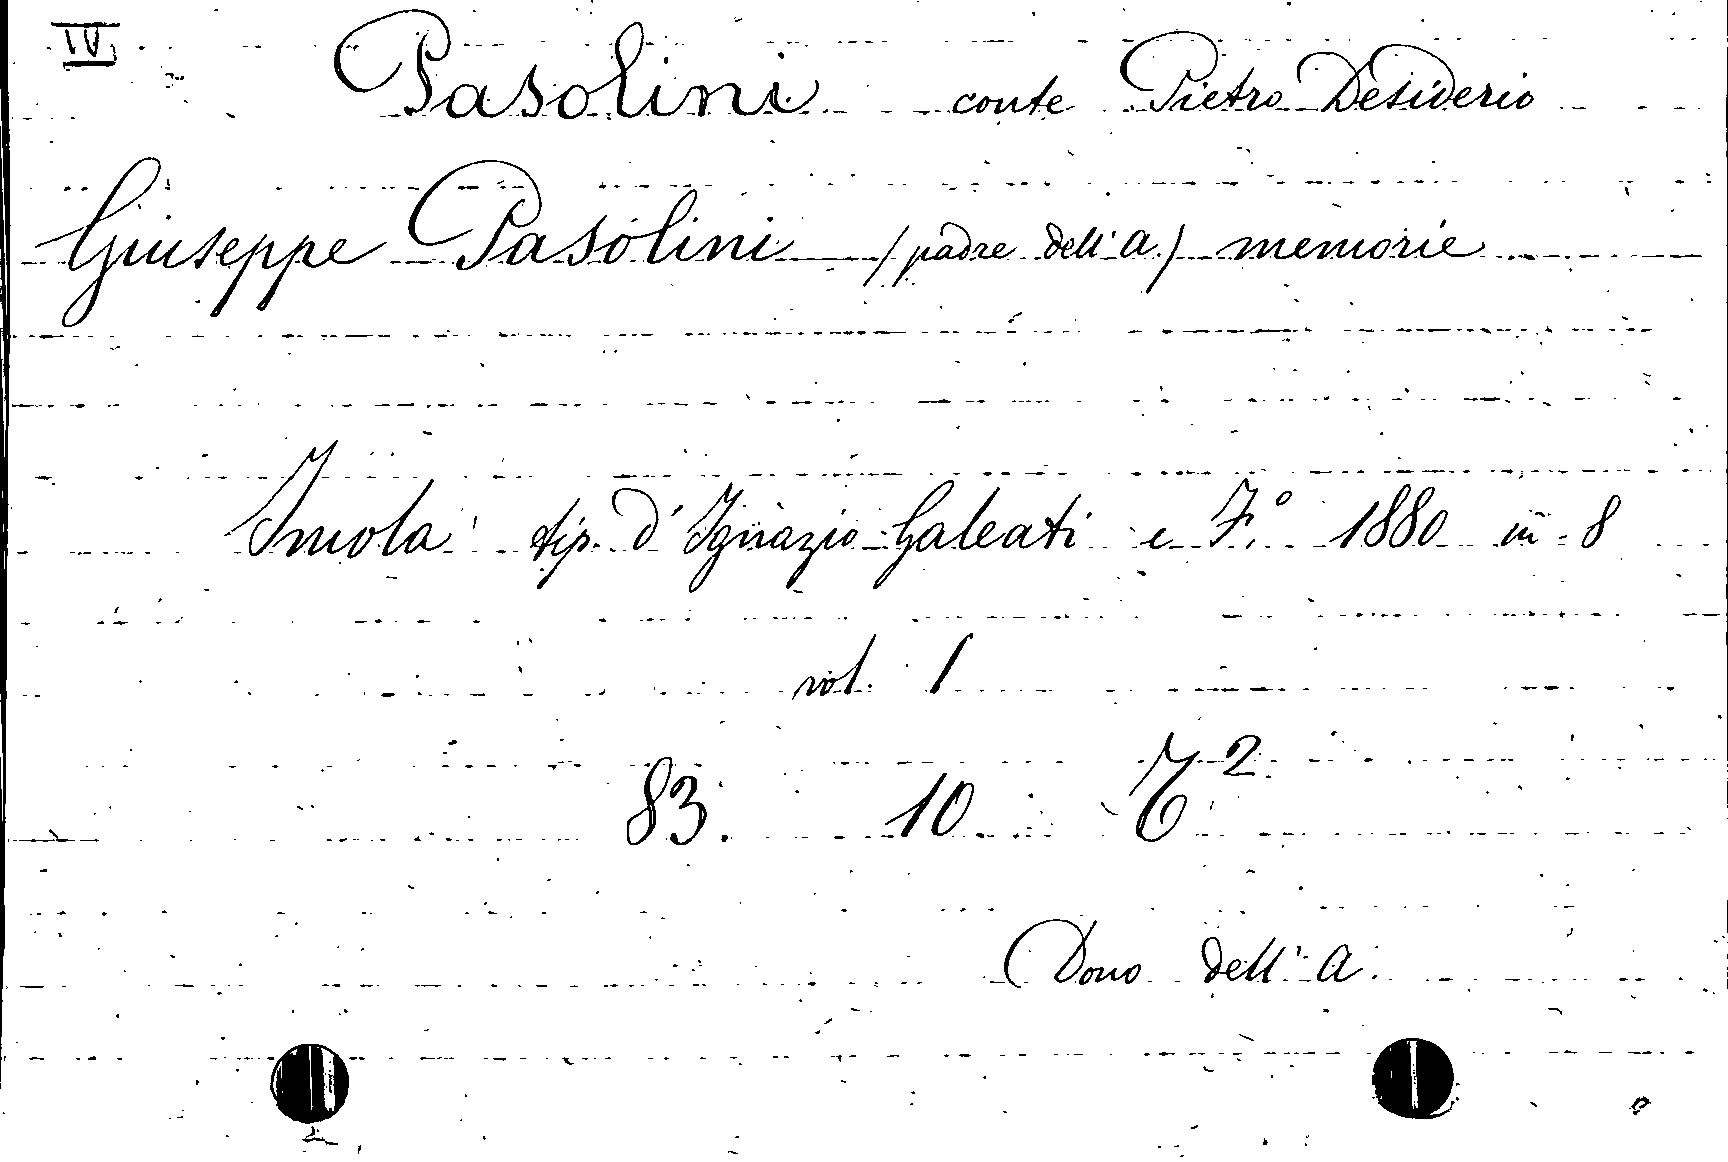 IV
Pasolini conte Pietro Desiderio
Giuseppe Pasolini (padre dell'A.) memorie
Imola tip. d'Ignazio Galeati e F.° 1880 in 8
vol. 1
83. 10
Dono dell'A.